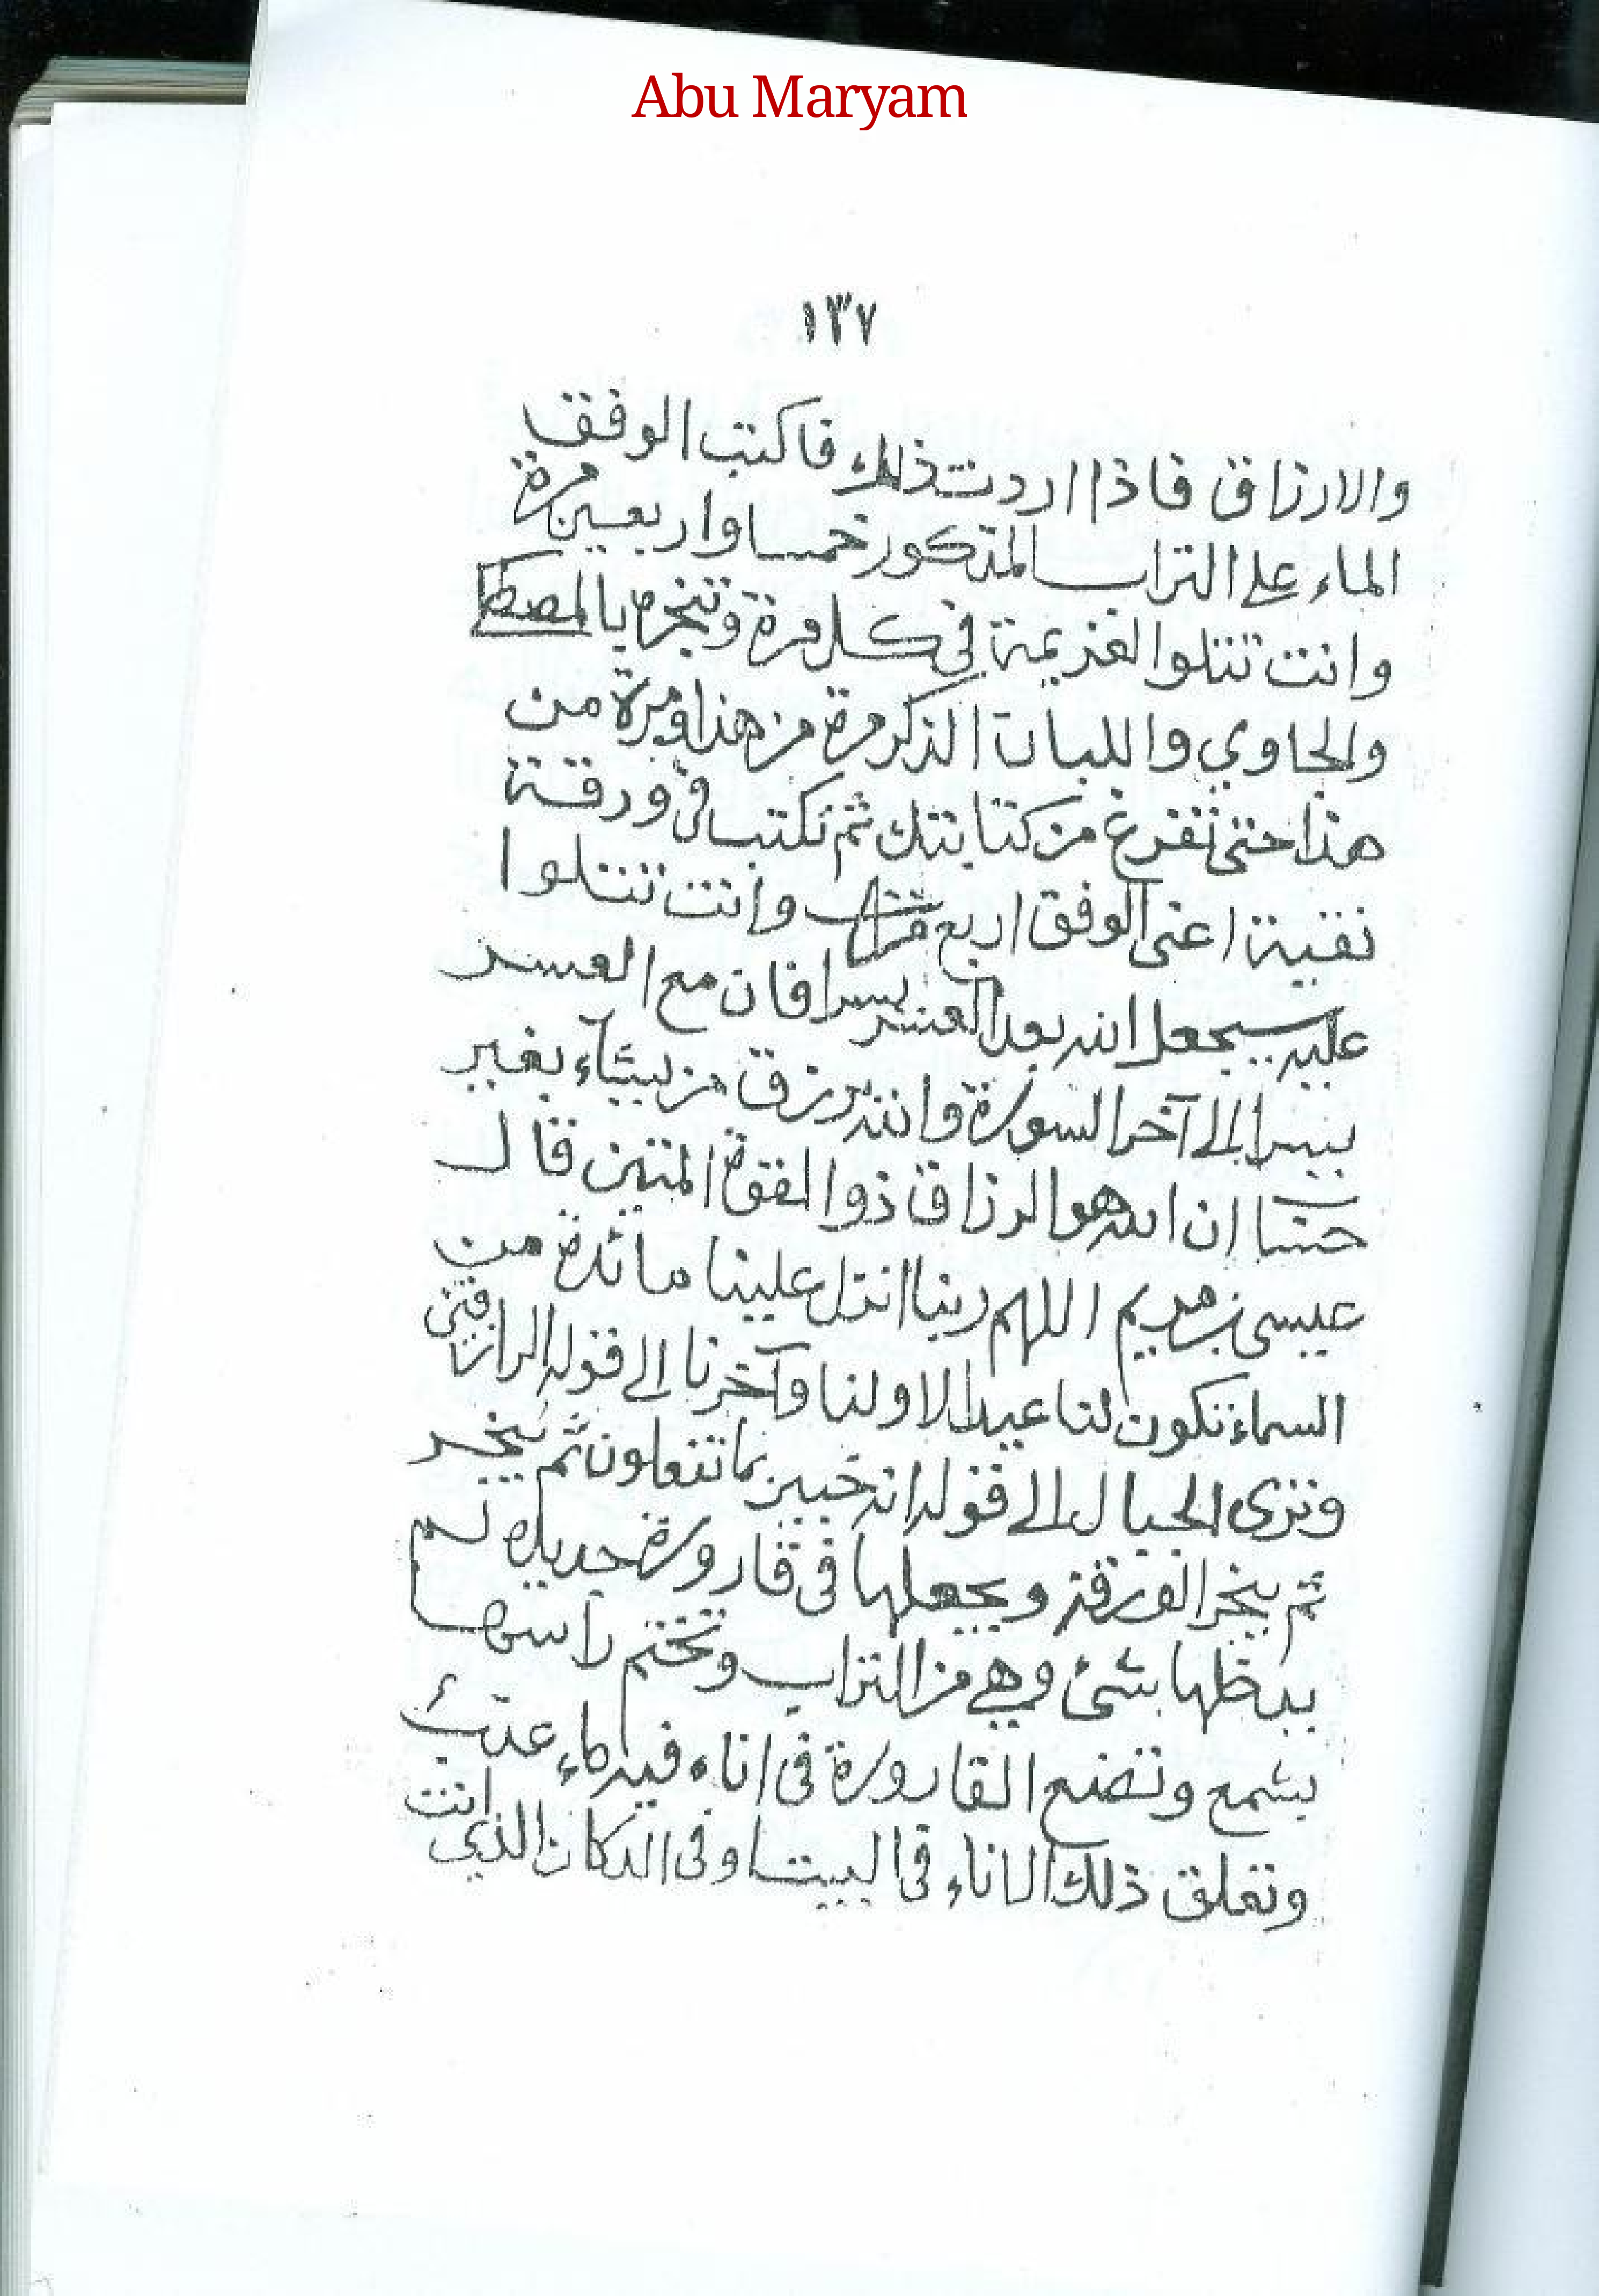 Abu Maryam
١٣٧
والارزاق فاذا اردت ذلك فاكتب الوفق
الماء على التراب المذكور خمسا واربعين مرة
وانت تتلوا العزيمة في كل مرة وتبخره بالمصطكا
والجاوي واللبان الذكر مرة من هذا ومرة من
هذا حتى تفرغ من كتابتك ثم تكتب في ورقة
نقية اعنى الوفق اربع مرات وانت تتلوا
عليه سيجعل الله بعد العسر يسرا فان مع العسر
يسرا الى آخر السورة والله يرزق من يشآء بغير
حساب ان الله هو الرزاق ذوا القوة المتين قال
عيسى بن مريم اللهم ربنا انزل علينا مائدة من
السماء تكون لنا عيدا لاولنا وآخرنا الى قوله الرازقين
وترى الجبال الى قوله انه خبير بما تفعلون ثم يبخر
ثم يبخر الورقة ويجعلها فى قارورة جديدة لم
يدخلها شئ وهي من التراب وتختم راسها
بشمع وتضع القارورة فى اناء فيه ماء عذب
وتعلق ذلك الاناء في البيت او فى الدكان الذي انت